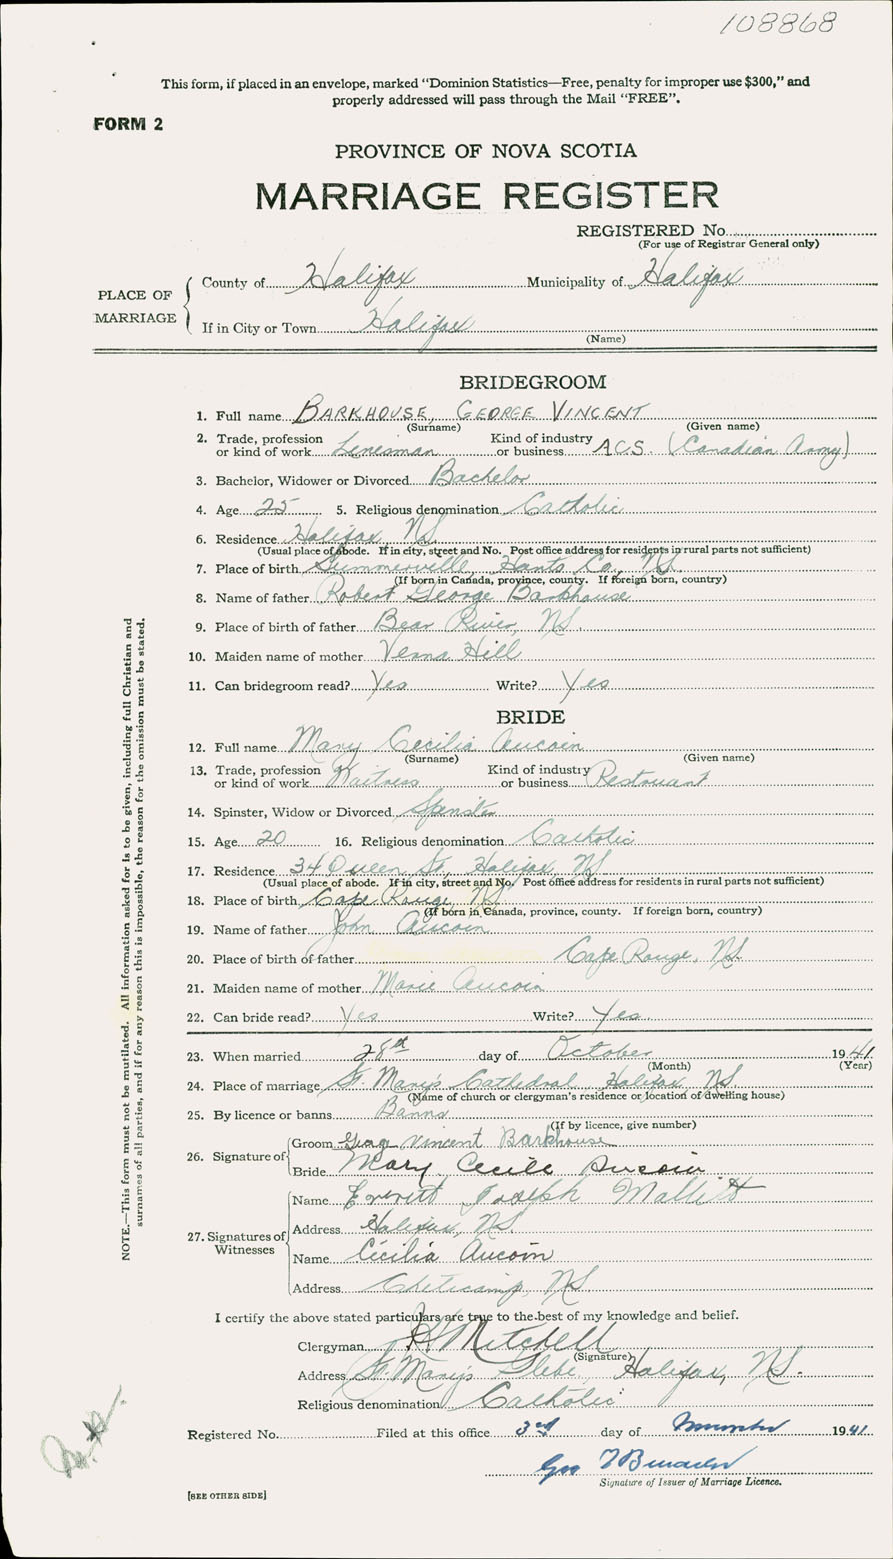 108868
This form, if placed in an envelope, marked "Dominion Statistics—Free, penalty for improper use $300," and
properly addressed will pass through the Mail "FREE".
FORM 2
PROVINCE OF NOVA SCOTIA
MARRIAGE REGISTER
REGISTERED No.
(For use of Registrar General only)
PLACE OF MARRIAGE
County of Halifax Municipality of Halifax
If in City or Town Halifax
(Name)
BRIDEGROOM
1. Full name BARKHOUSE, GEORGE VINCENT
(Surname) (Given name)
2. Trade, profession or kind of work Linesman Kind of industry or business ACS. (Canadian Army)
3. Bachelor, Widower or Divorced Bachelor
4. Age 25 5. Religious denomination Catholic
6. Residence Halifax, NS.
(Usual place of abode. If in city, street and No. Post office address for residents in rural parts not sufficient)
7. Place of birth Summerville Hants Co., NS.
(If born in Canada, province, county. If foreign born, country)
8. Name of father Robert George Barkhouse
9. Place of birth of father Bear River, NS.
10. Maiden name of mother Verna Hill
11. Can bridegroom read? Yes Write? Yes
BRIDE
12. Full name Mary Cecilia Aucoin
(Surname) (Given name)
13. Trade, profession or kind of work Waitress Kind of industry or business Restourant
14. Spinster, Widow or Divorced Spinster
15. Age 20 16. Religious denomination Catholic
17. Residence 34 Queen St, Halifax, NS
(Usual place of abode. If in city, street and No. Post office address for residents in rural parts not sufficient)
18. Place of birth Cape Rouge, NS
(If born in Canada, province, county. If foreign born, country)
19. Name of father John Aucoin
20. Place of birth of father Cape Rouge, NS.
21. Maiden name of mother Marie Aucoin
22. Can bride read? Yes Write? Yes.
23. When married 28th day of October 1941
(Month) (Year)
24. Place of marriage St. Mary's Cathedral Halifax, NS.
(Name of church or clergyman's residence or location of dwelling house)
25. By licence or banns Banns
(If by licence, give number)
26. Signature of Groom George Vincent Barkhouse
Bride Mary Cecile Aucoin
27. Signatures of Witnesses
Name Everitt Joseph Mallitt
Address Halifax, NS.
Name Cecilia Aucoin
Address Cheticamp, NS.
I certify the above stated particulars are true to the best of my knowledge and belief.
Clergyman Mitchell
(Signature)
Address St. Mary's Glebe, Halifax, NS.
Religious denomination Catholic
Registered No. Filed at this office 3rd day of November 1941.
Signature of Issuer of Marriage Licence.
[SEE OTHER SIDE]
NOTE.—This form must not be mutilated. All information asked for is to be given, including full Christian and
surnames of all parties, and if for any reason this is impossible, the reason for the omission must be stated.